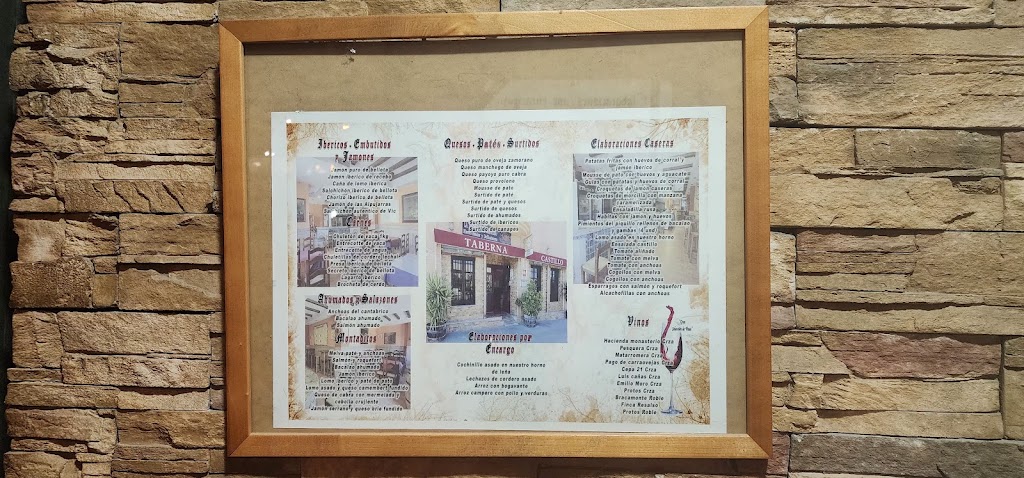 Ibericos - Embutidos
y Jamones
Jamon puro de bellota
Jamon iberico de recebo
Caña de lomo iberica
Salchichon iberico de bellota
Chorizo iberico de bellota
Jamon de las Alpujarras
Salchichon autentico de Vic
Carnes
Chuleton de vaca 1kg
Entrecotte de vaca
Entrecotte de angus
Chuletillas de cordero lechal
Presa iberica de bellota
Secreto iberico de bellota
Lagarto iberico
Brocheta de cerdo
Ahumados y Salazones
Anchoas del cantabrico
Bacalao ahumado
Salmon ahumado
Montaditos
Melva pate y anchoas
Salmon y roquefort
Bacalao ahumado
Jamon iberico
Lomo iberico y pate de pato
Lomo asado y queso camembert fundido
Queso de cabra con mermelada y
cebolla crujiente
Jamon serrano y queso brie fundido
Quesos - Patés - Surtidos
Queso puro de oveja zamorano
Queso manchego de oveja
Queso payoyo puro cabra
Queso provolone
Mousse de pato
Surtido de pate
Surtido de pate y quesos
Surtido de quesos
Surtido de ahumados
Surtido de ibericos
Surtido de canapes
TABERNA
CASTILLO
Elaboraciones por
Encargo
Cochinillo asado en nuestro horno
de leña
Lechazos de cordero asado
Arroz con bogavante
Arroz campero con pollo y verduras
Elaboraciones Caseras
Patatas fritas con huevos de corral y
jamon iberico
Mousse de pato con huevos y aguacates
Gulas con patatas y huevos de corral
Croquetas de jamon caseras
Croquetas de morcilla con manzana
caramelizada
Ensaladilla
Habitas con jamon y huevos
Pimientos del piquillo rellenos de bacalao
y gambas (4 und)
Lomo asado en nuestro horno
Ensalada castillo
Tomate aliñado
Tomate con melva
Tomate con anchoas
Cogollos con melva
Cogollos con anchoas
Esparragos con salmón y roquefort
Alcachofillas con anchoas
Vinos
Hacienda monasterio Crza
Pesquera Crza
Matarromera Crza
Pago de carraovejas Crza
Cepa 21 Crza
Luis cañas Crza
Emilio Moro Crza
Protos Crza
Bracamonte Roble
Finca Resalso
Protos Roble